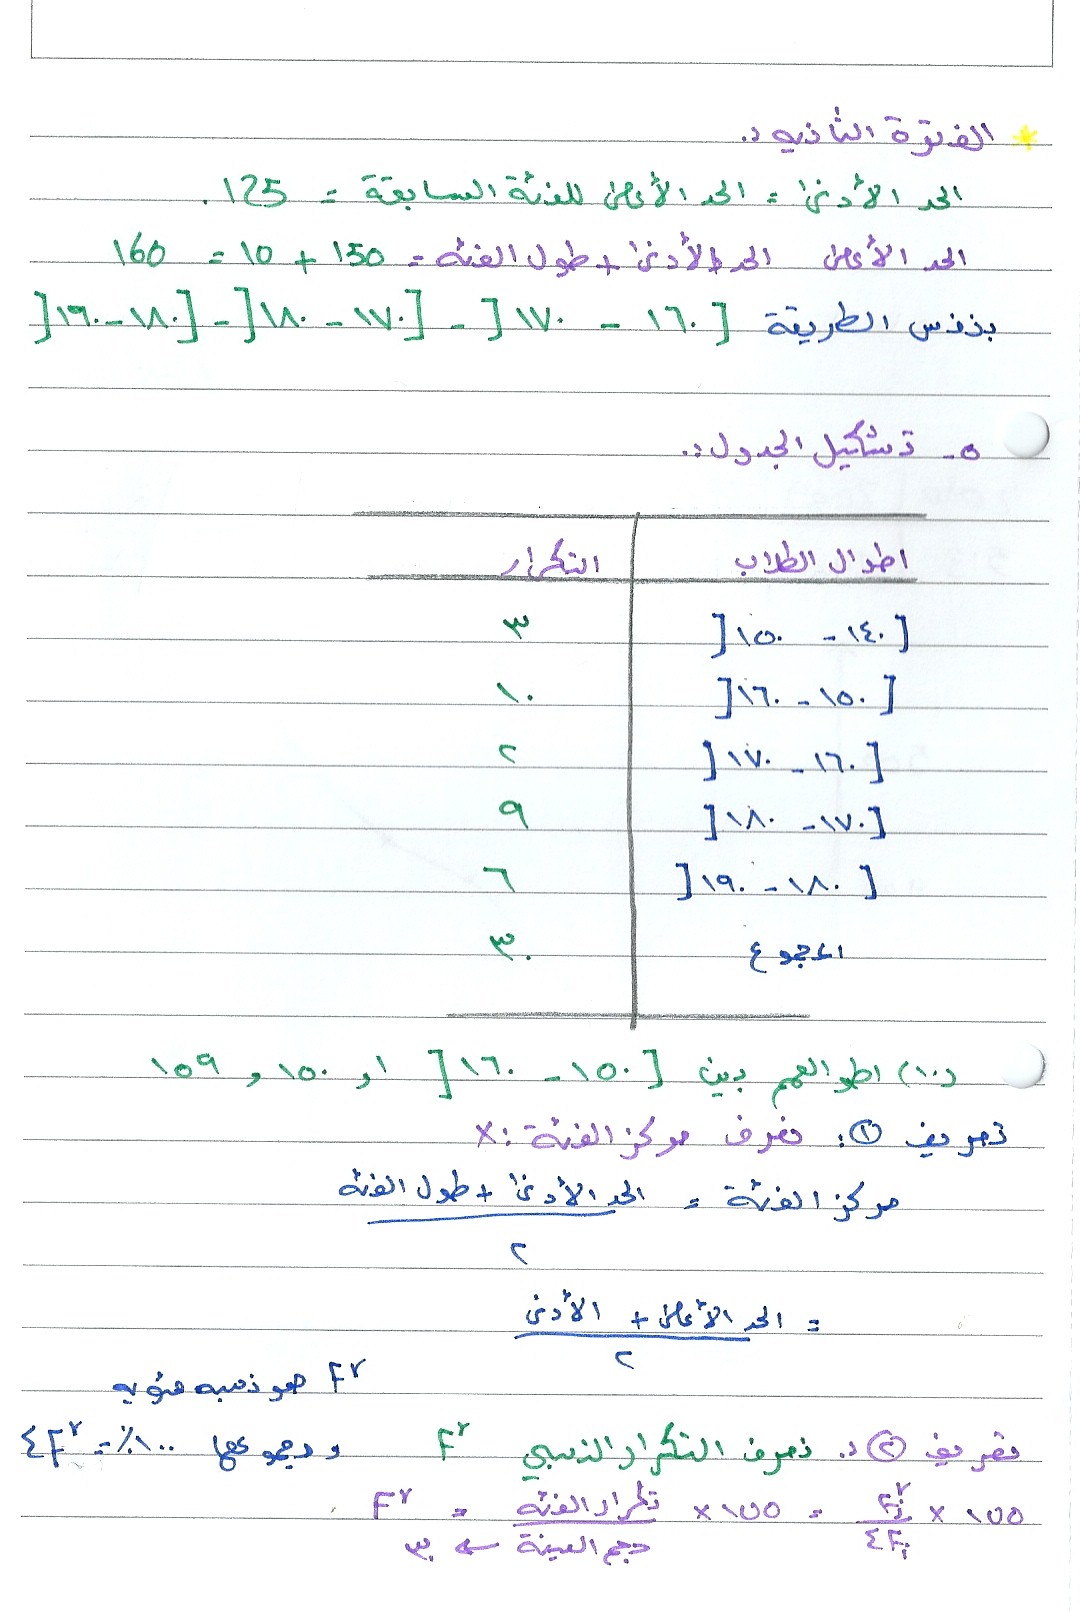 * الفترة الثانيه :.
الحد الأدنى = الحد الأعلى للفئة السابقة = 125.
الحد الأعلى الحد الأدنى + طول الفئه = 150 + 10 = 160
بنفس الطريقة [١٦٠ - ١٧٠[ - [١٧٠ - ١٨٠[ - [١٨٠ - ١٩٠[
٥- تشكيل الجدول :.
اطوال الطلاب | التكرار
[١٤٠ - ١٥٠[ | ٣
[١٥٠ - ١٦٠[ | ١٠
[١٦٠ - ١٧٠[ | ٢
[١٧٠ - ١٨٠[ | ٩
[١٨٠ - ١٩٠[ | ٦
المجموع | ٣٠
(١٠) اطوالهم بين [١٥٠ - ١٦٠[ او ١٥٠ و ١٥٩
تعريف ①: نعرف مركز الفئة : x
مركز الفئة = الحد الأدنى + طول الفئه / ٢
= الحد الأعلى + الأدنى / ٢
Fr هو نسبه مئويه
تعريف ② :. نعرف التكرار النسبي Fr ومجموعها ١٠٠٪ = ΣFr
Fr = تكرار الفئه / حجم العينة ← ٣٠ × ١٠٠ = Fi / ΣFi × ١٠٠